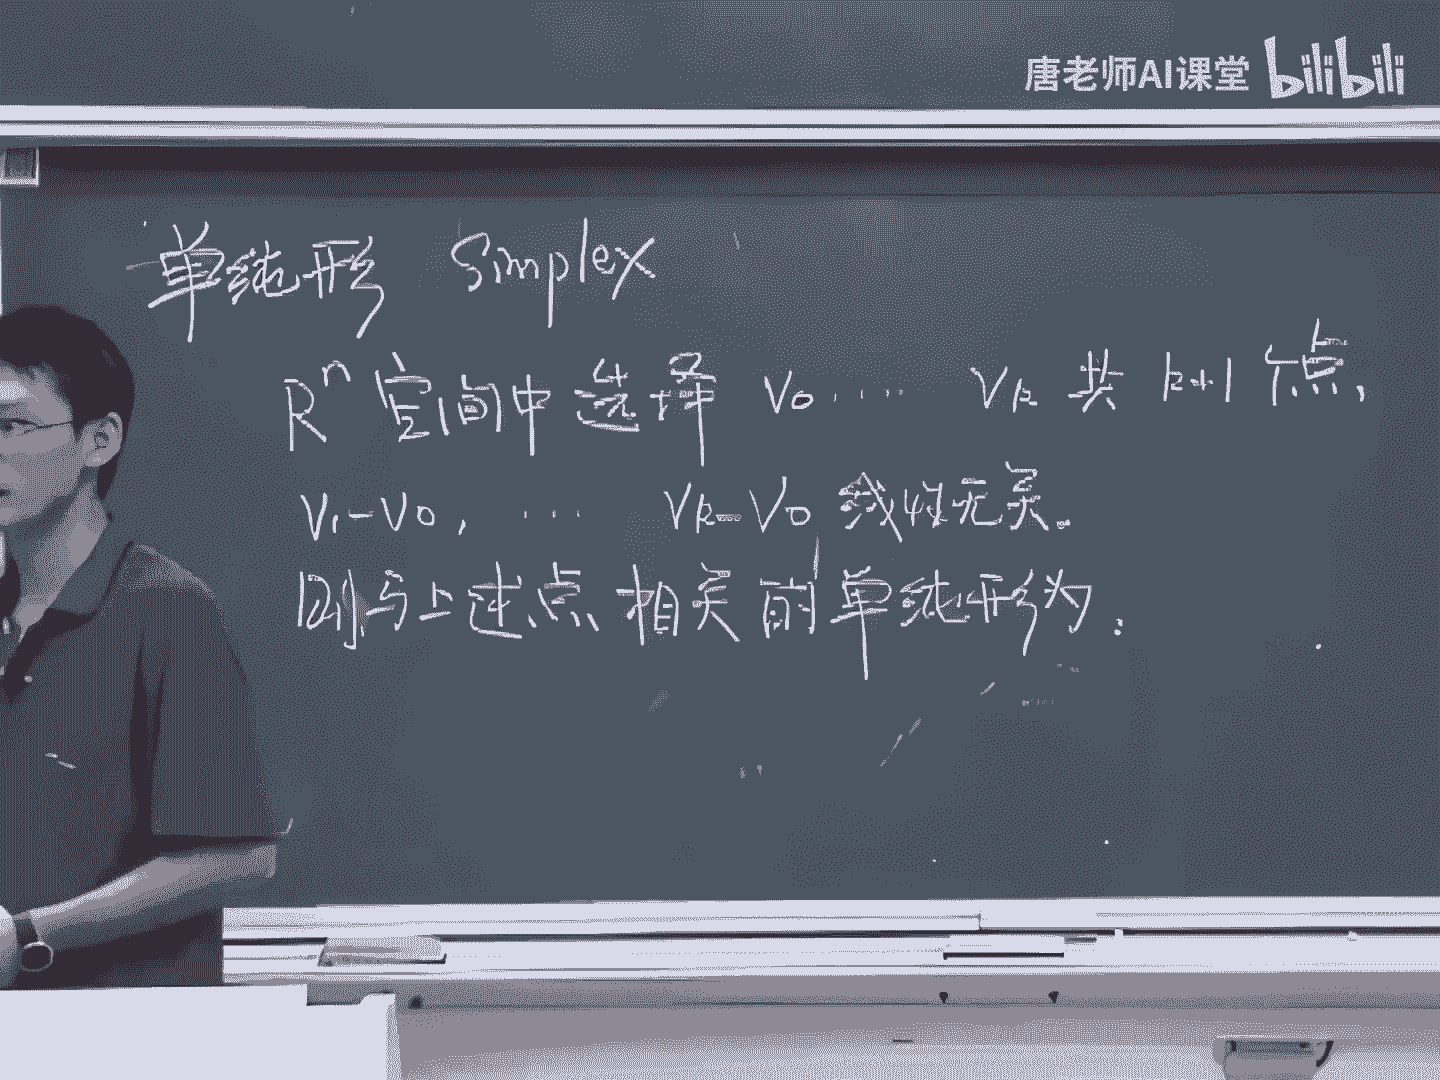 唐老师AI课堂 bilibili
单纯形 Simplex
Rⁿ空间中选择 v₀ ····· vₖ 共 k+1 个点,
v₁-v₀, ··· vₖ-v₀ 线性无关。
则与上述点相关的单纯形为: